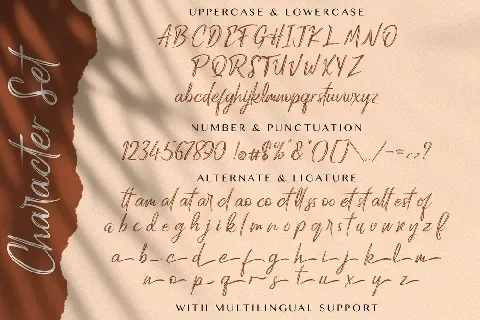 Character Set
UPPERCASE & LOWERCASE
ABCDEFGHIJKLMNO
PQRSTUVWXYZ
abcdefghijklmnopqrstuvwxyz
NUMBER & PUNCTUATION
1234567890 !@#$%^&*()[]\./-=,.?
ALTERNATE & LIGATURE
tt am al at ar cl ao co ct ll ss oo et st alt est of
a b c d e f g h i j k l m n o p q r s t u v w x y z
a_b_c_d_e_f_g_h_i_j_k_l_m_
n_o_p_q_r_s_t_u_v_x_y_z
WITH MULTILINGUAL SUPPORT